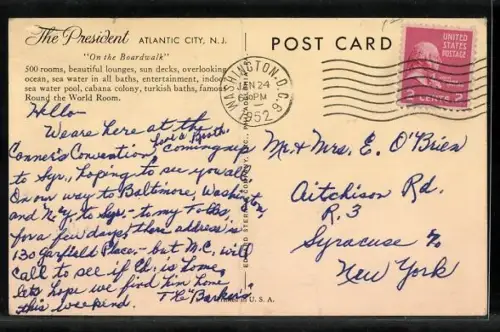 The President ATLANTIC CITY, N.J.
"On the Boardwalk"
500 rooms, beautiful lounges, sun decks, overlooking
ocean, sea water in all baths, entertainment, indoor
sea water pool, cabana colony, turkish baths, famous
Round the World Room.
Hello -
We are here at the
Canner's Convention, coming up
to Syr., hoping to see you all
On our way to Baltimore, Washington,
and N.Y. to Syr - to my Folks,
for a few days, there address is
130 Garfield Place, - but M.C. will
call to see if Ch. is home,
lets hope we find him home
this weekend. The "Barkers"
POST CARD
WASHINGTON, D.C.
JAN 24
PM
1952
UNITED STATES
POSTAGE
2 CENTS 2
Mr & Mrs. E. O'Brien
Aitchison Rd.
R.3
Syracuse
New York
IN U.S.A.